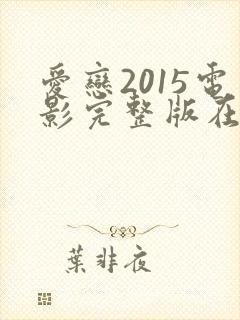 愛戀2015電
影完整版在
葉非夜